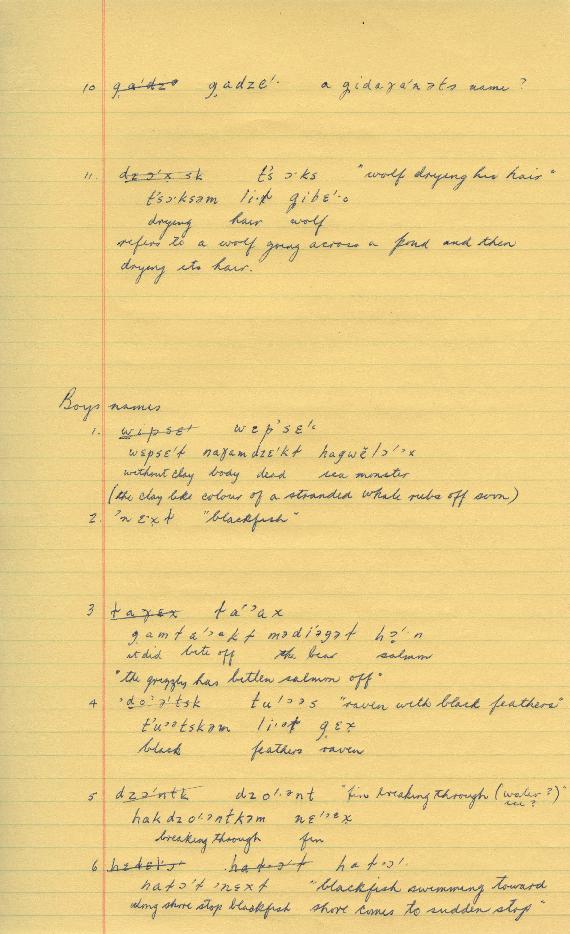 10 g̱a'dzə g̱adzɛ'· a gidaɣa'nəts name?
11. dzɔ'x sk t's ɔ·ks "wolf drying his hair"
t'sɔ·ksəm li·ƚ gibɛ'·o
drying hair wolf
refers to a wolf going across a pond and then
drying its hair.
Boys names
1. wɛpsɛ' wɛp'sɛ'·
wɛpsɛ't naɣamdzɛ'kt hagwĕlɔ'·x
without clay body dead sea monster
(the clay like colour of a stranded whale rubs off soon)
2. 'nɛxƚ "blackfish"
3 ƚaɣɛx ƚa'ʾax
g̱amƚa'ʾəkƚ mədi'əgəƚ hə̣'·n
it did bite off the bear salmon
"the grizzly has bitten salmon off"
4 tu'ʾəs "raven with black feathers"
t'uʾətskəm li·ƚ g̱ɛx
black feathers raven
5 dzɔ'ntk dzo'·ənt "fin breaking through (water?)"
ice?
hakdzo'·əntkəm nɛ'ʾɛx
breaking through fin
6 haƚɔ'·
haƚɔ'ƚ 'nɛxƚ "blackfish swimming toward
along shore stop blackfish shore comes to sudden stop"